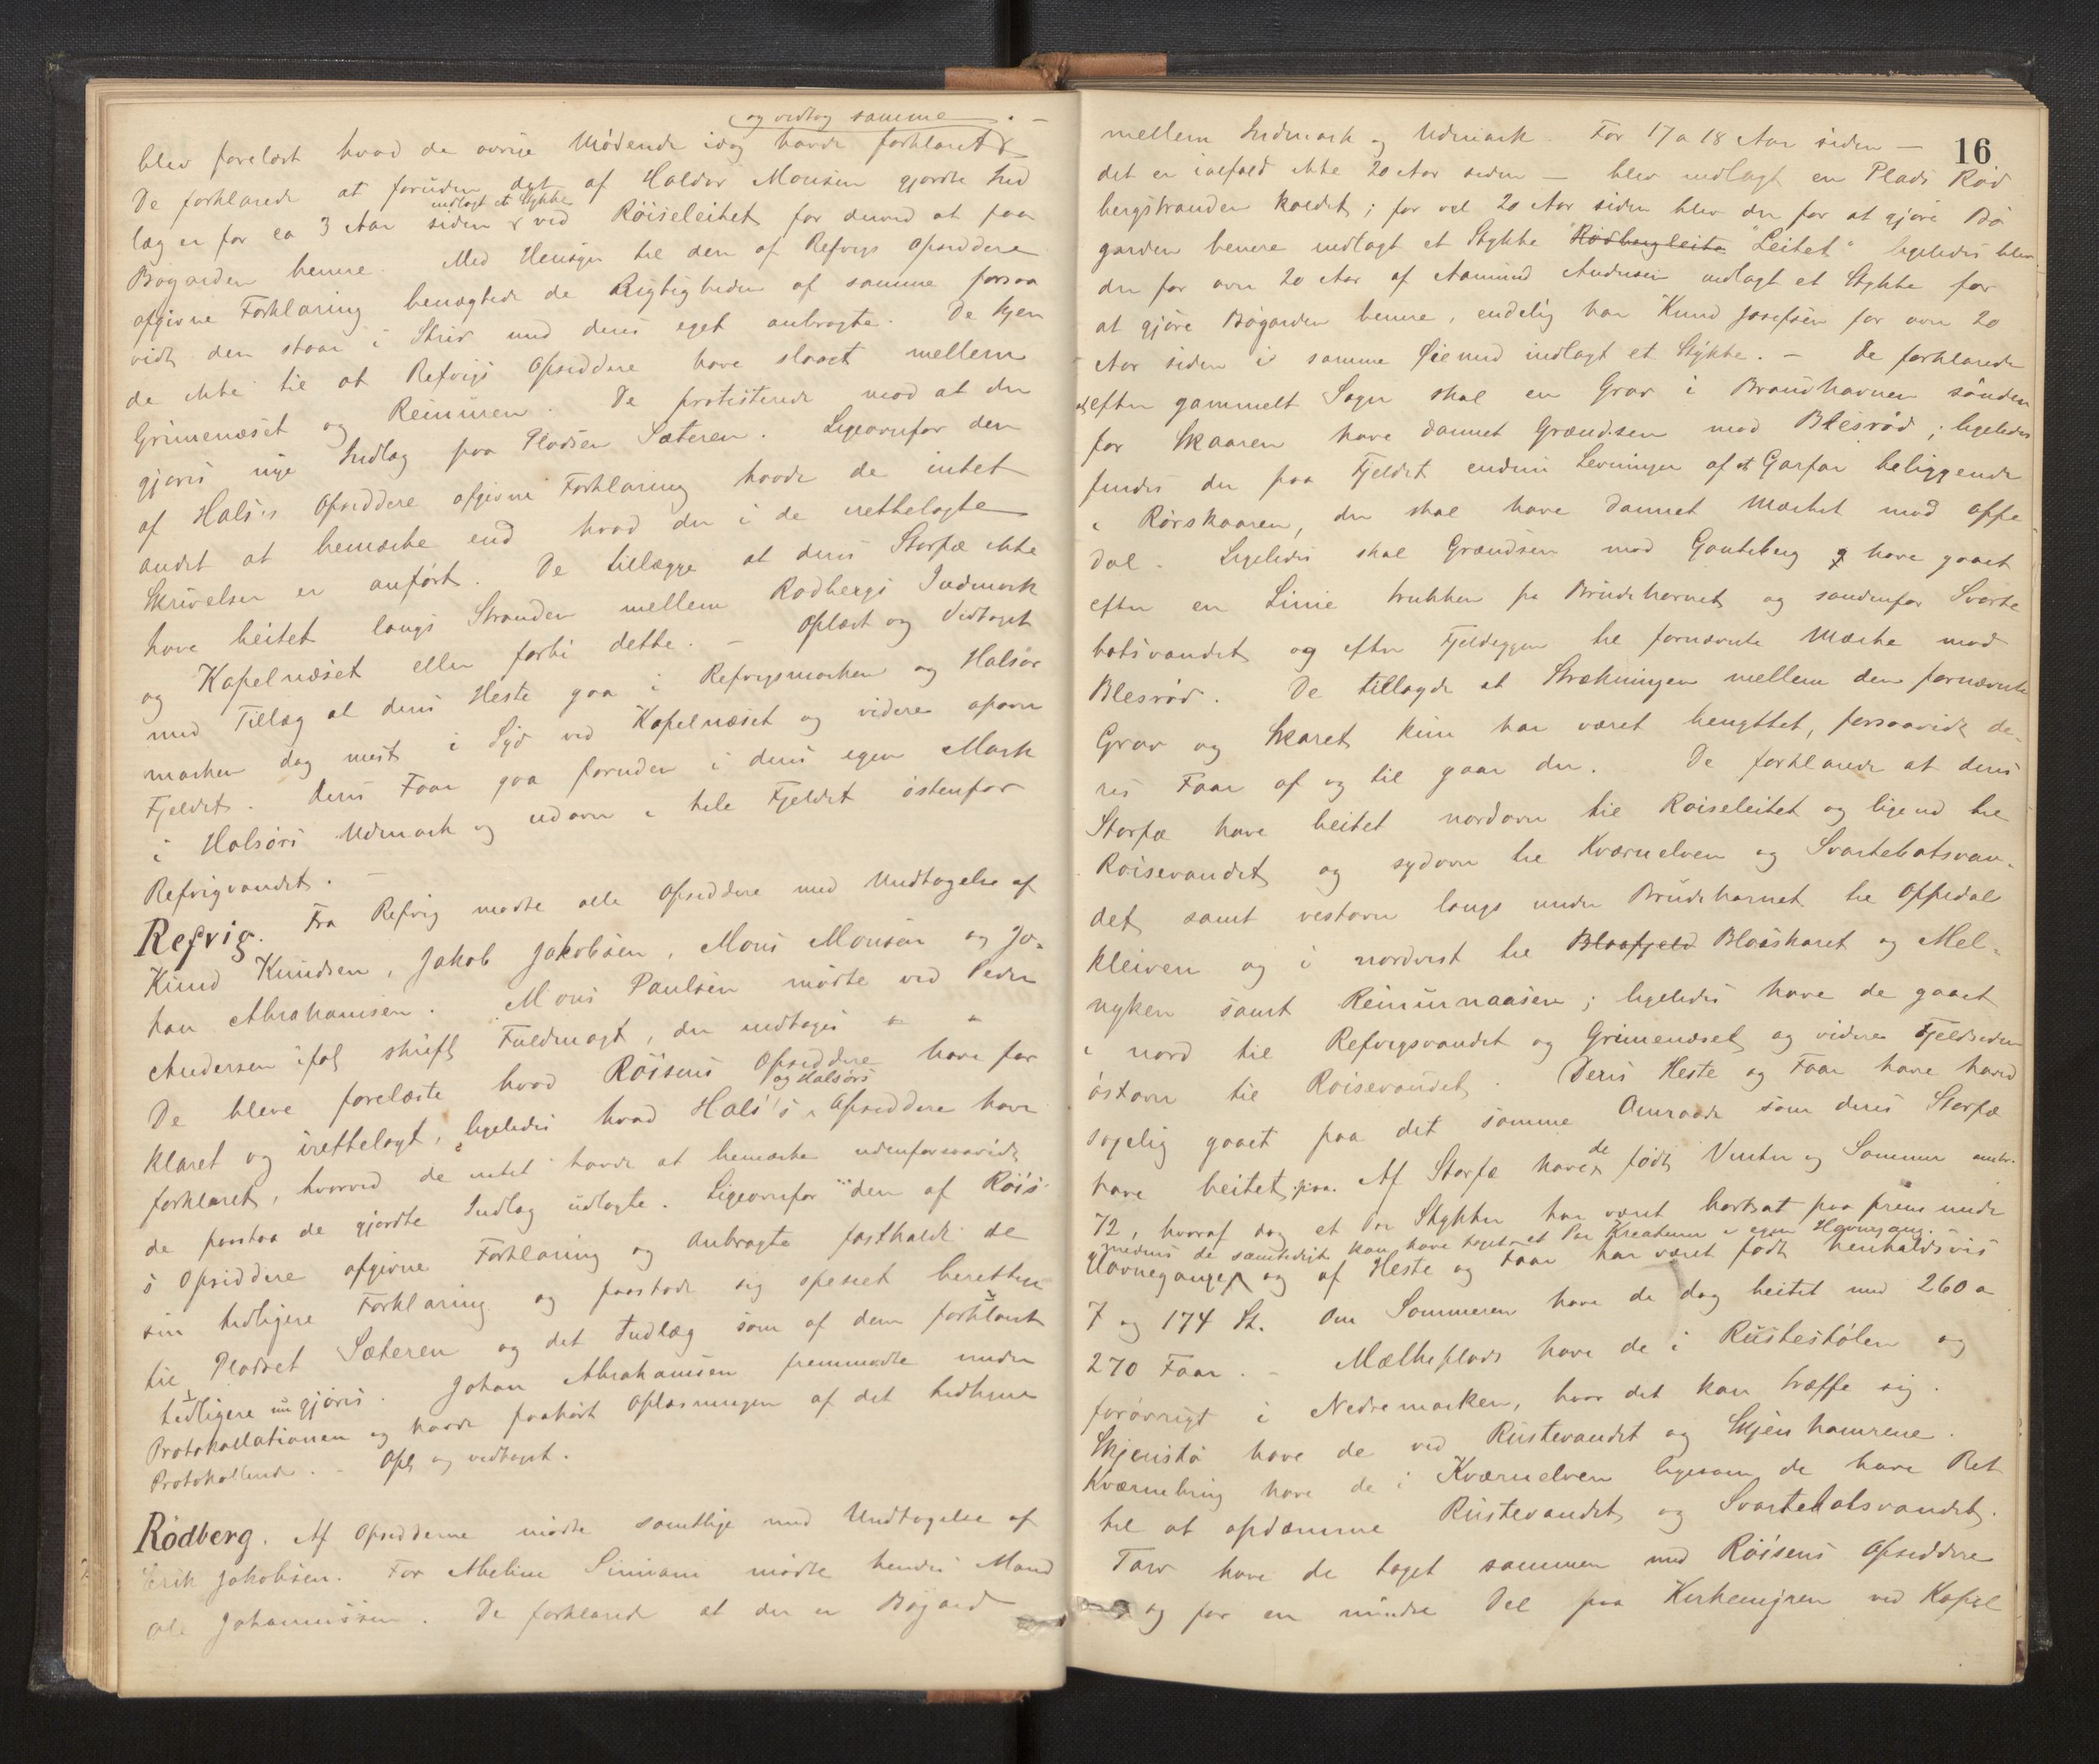 og vedtog samme . -
blev forelæst hvad de øvrige Mødende idag havde forklaret
De forklarede at foruden det af Haldor Monsen gjordte Ind
indlagt et Stykke
læg er for ca 3 Aar siden ved Röiseleitet for derved at faa
Bøgarden benere. Med Hensyn til den af Refvigs Opsiddere
afgivne Forklaring benægtede de Rigtigheden af samme forsaa
vidt den staar i Strid med deres eget anbragte. De kjen
de ikke til at Refvigs Opsiddere have slaaet mellem
Grimenæset og Reinuren. De protesterede mod at der
gjøres nye Indlæg paa Pladsen Sæteren. Ligeoverfor den
af Hals's Opsiddere afgivne Forklaring havde de intet
andet at bemærke end hvad der i de irettelagte
Skrivelser er anført. De tillægge at deres Storfæ ikke
have beitet langs Stranden mellem Rødbergs Indmark
og Kapelnæset eller forbi dette. - Oplæst og Vedtaget
med Tillæg at deres Heste gaa i Refvigsmarken og Halsør
marken dog mest i Syd ved Kapelnæset og videre opover
Fjeldet. Deres Faar gaa foruden i deres egen Mark
i Halsørs Udmark og udover i hele Fjeldet østenfor
Refvigvandet. -
Refvig. Fra Refvig mødte alle Opsiddere med Undtagelse af
Knud Knudsen, Jakob Jakobsen, Mons Monsen og Jo-
han Abrahamsen. Mons Paulsen mødte ved Peder
Andersen iføl skriftl Fuldmagt, der indtages
De bleve forelæste hvad Röisens Opsiddere have for
og Halsørs
klaret og irettelagt, ligeledes hvad Hals's Opsiddere have
forklaret, hvorved de intet havde at bemærke udenforsaavidt
de paastaa de gjordte Indlæg udlagte. Ligeoverfor den af Röis-
s Opsiddere afgivne Forklaring og Anbragte fastholdt de
sin tidligere Forklaring og paastod sig specielt berettiget
til Pladset Sæteren og det Indlæg som af dem forklaret
tidligere er gjøres. Johan Abrahamsen fremmødte under
Protokollationen og havde paahørt Oplæsningen af det tidligere
Protokollerede. - Opl og vedtaget.
Rödberg. Af Opsidderne mødte samtlige med Undtagelse af
Erik Jakobsen. For Abeline Simam mødte hendes Mand
Ole Johannessen. De forklared at der er Bøgard
16
mellem Indmark og Udmark. For 17 a 18 Aar siden -
det er ialfald ikke 20 Aar siden - blev indlagt en Plads Rød
bergstranden kaldet; for vel 20 Aar siden blev der for at gjøre Bø
garden benere indlagt et Stykke Rødbergleite "Leitet" ligeledes blev
der for over 20 Aar af Aamund Andersen indlagt et Stykke for
at gjøre Bøgarden benere, endelig har Knud Josefsen for over 20
Aar siden i samme Øiemed indlagt et Stykke. - De forklarede
at efter gammelt Sagn skal en Grav i Brandhavnen sønden
for Skaaren have dannet Grændsen mod Blesrød; ligeledes
findes der paa Fjeldet endnu Levninger af et Garfar beliggende
i Rørskaaren, der skal have dannet Mærket mod Oppe
dal. Ligeledes skal Grændsen mod Gouteberg have gaaet
efter en Linie trukken fra Brudehornet og søndenfor Svarte
batsvandet og efter Fjeldeggen til førnævnte Mærke mod
Blesrød. De tillagde at Strækningen mellem den førnævnte
Grav og Skaret kun har været benyttet, forsaavidt de-
res Faar af og til gaar der. De forklarede at deres
Storfæ have beitet nordover til Roiseleitet og ligened til
Roisevandet og sydover til Kværnelven og Svartebatsvan-
det samt vestover langs under Brudehornet til Oppedal
kleiven og i nordvest til Blaafjeld Blaaskaret og Mel-
nyken samt Reinurnaasen; ligeledes have de gaaet
i nord til Refvigsvandet og Grimenæset og videre Fjeldsiden
østover til Roisevandet. Deres Heste og Faar have hoved
sagelig gaaet paa det samme Omraade som deres Storfæ
have beitet paa. Af Storfæ have de født Vinter og Sommer omtr.
72, hvoraf dog et Par Stykker har været bortsat paa fremmede
medens de samtidigt kan have taget et Par Kreaturer i egen Havnegang. -
Havneganger og af Heste og Faar har været født henholdsvis
7 og 174 St. Om Sommeren have de dog beitet med 260 a
270 Faar. - Mælkeplads have de i Rustestølen og
forøvrigt i Nedremarken, hvor det kan træffe sig.
Skjenstø have de ved Rustevandet og Skjenhamrene.
Kværnebrug have de i Kværnelven ligesom de have Ret
til at opdæmme Rustevandet og Svartebatsvandet.
Tarv have de taget sammen med Röisens Opsiddere
og for en mindre Del paa Kirkemyren ved Kapel